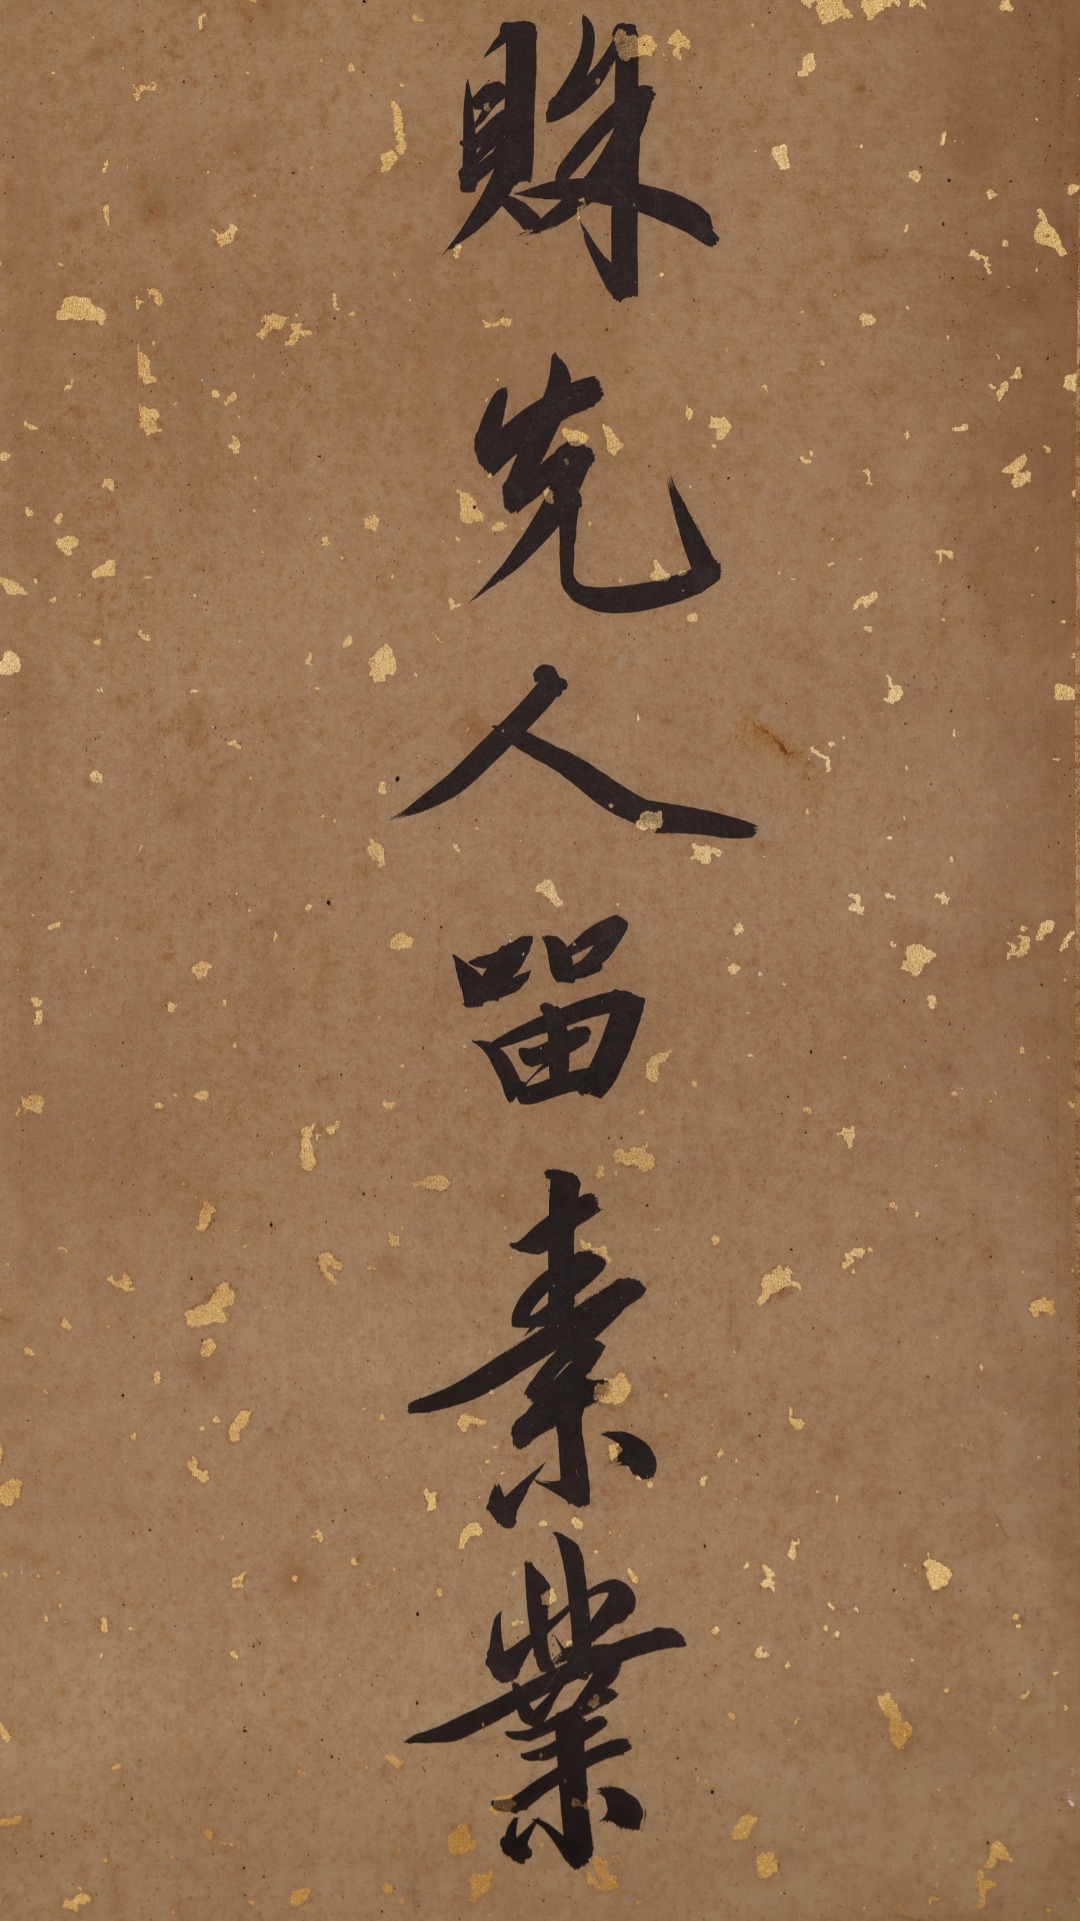 先人留素業